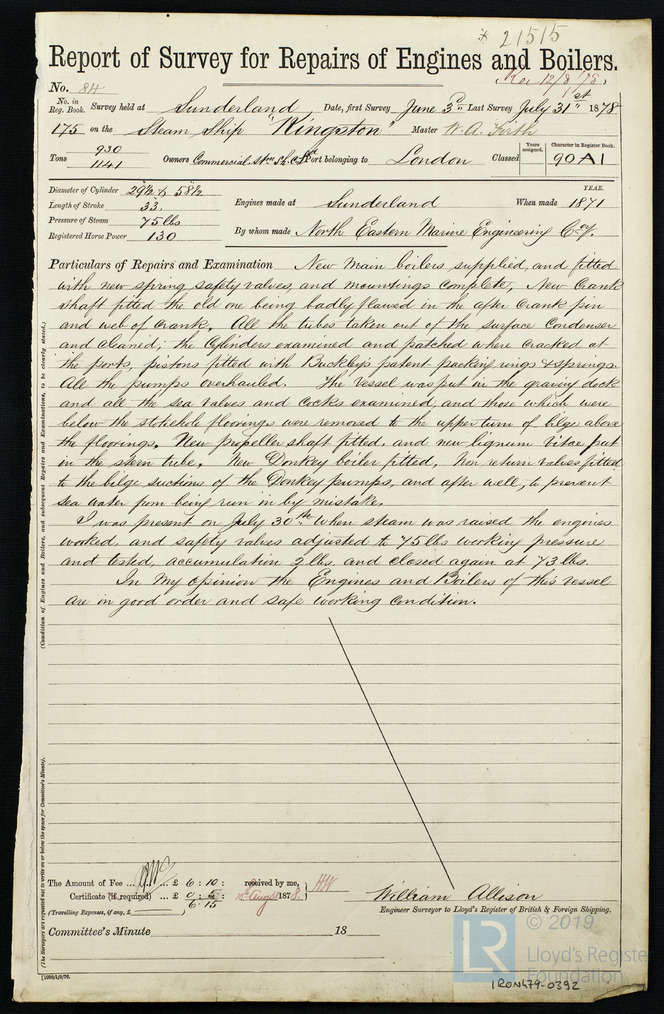 * 21515
Report of Survey for Repairs of Engines and Boilers.
Rec 12/8/78
No. 84
No. in Reg. Book. Survey held at Sunderland Date, first Survey June 3rd Last Survey July 31st 1878
175 on the Steam Ship "Kingston" Master W. A. Firth
Tons 930 / 1141 Owners Commercial Stm Sh. Co Ld Port belonging to London Classed Years assigned. Character in Register Book. 90 A1
Diameter of Cylinder 29½ & 58½
Length of Stroke 33
Pressure of Steam 75 lbs
Registered Horse Power 130
Engines made at Sunderland When made YEAR. 1871
By whom made North Eastern Marine Engineering Coy.
Particulars of Repairs and Examination New Main boilers supplied, and fitted
with new spring safety valves, and mountings complete, New Crank
shaft fitted the old one being badly flawed in the after crank pin
and web of crank. All the tubes taken out of the surface Condenser
and cleaned; the Cylinders examined and patched where cracked at
the ports, pistons fitted with Buckley's patent packing rings & springs.
All the pumps overhauled. The vessel was put in the graving dock
and all the sea valves and cocks examined, and those which were
below the stokehole floorings were removed to the upper turn of bilge above
the floorings. New propeller shaft fitted, and new lignum vitae put
in the stern tube. New Donkey boiler fitted. Non return valves fitted
to the bilge suctions of the Donkey pumps, and after well, to prevent
sea water from being run in by mistake.
I was present on July 30th when steam was raised the engines
worked, and safety valves adjusted to 75 lbs working pressure
and tested, accumulation 2 lbs, and closed again at 73 lbs.
In my opinion the Engines and Boilers of this vessel
are in good order and safe working condition.
(Condition of Engines and Boilers, and subsequent Repairs and Examinations, to be clearly stated.)
(The Surveyors are requested not to write on or below the space for Committee's Minute.)
The Amount of Fee ... £ 6 : 10 : received by me,
Certificate (if required) .. £ 0 : 5 : Augt 1878
6 . 15
(Travelling Expenses, if any, £ )
William Allison
Engineer Surveyor to Lloyd's Register of British & Foreign Shipping.
Committee's Minute 18
© 2019
LR Lloyd's Register Foundation
IRON479-0392